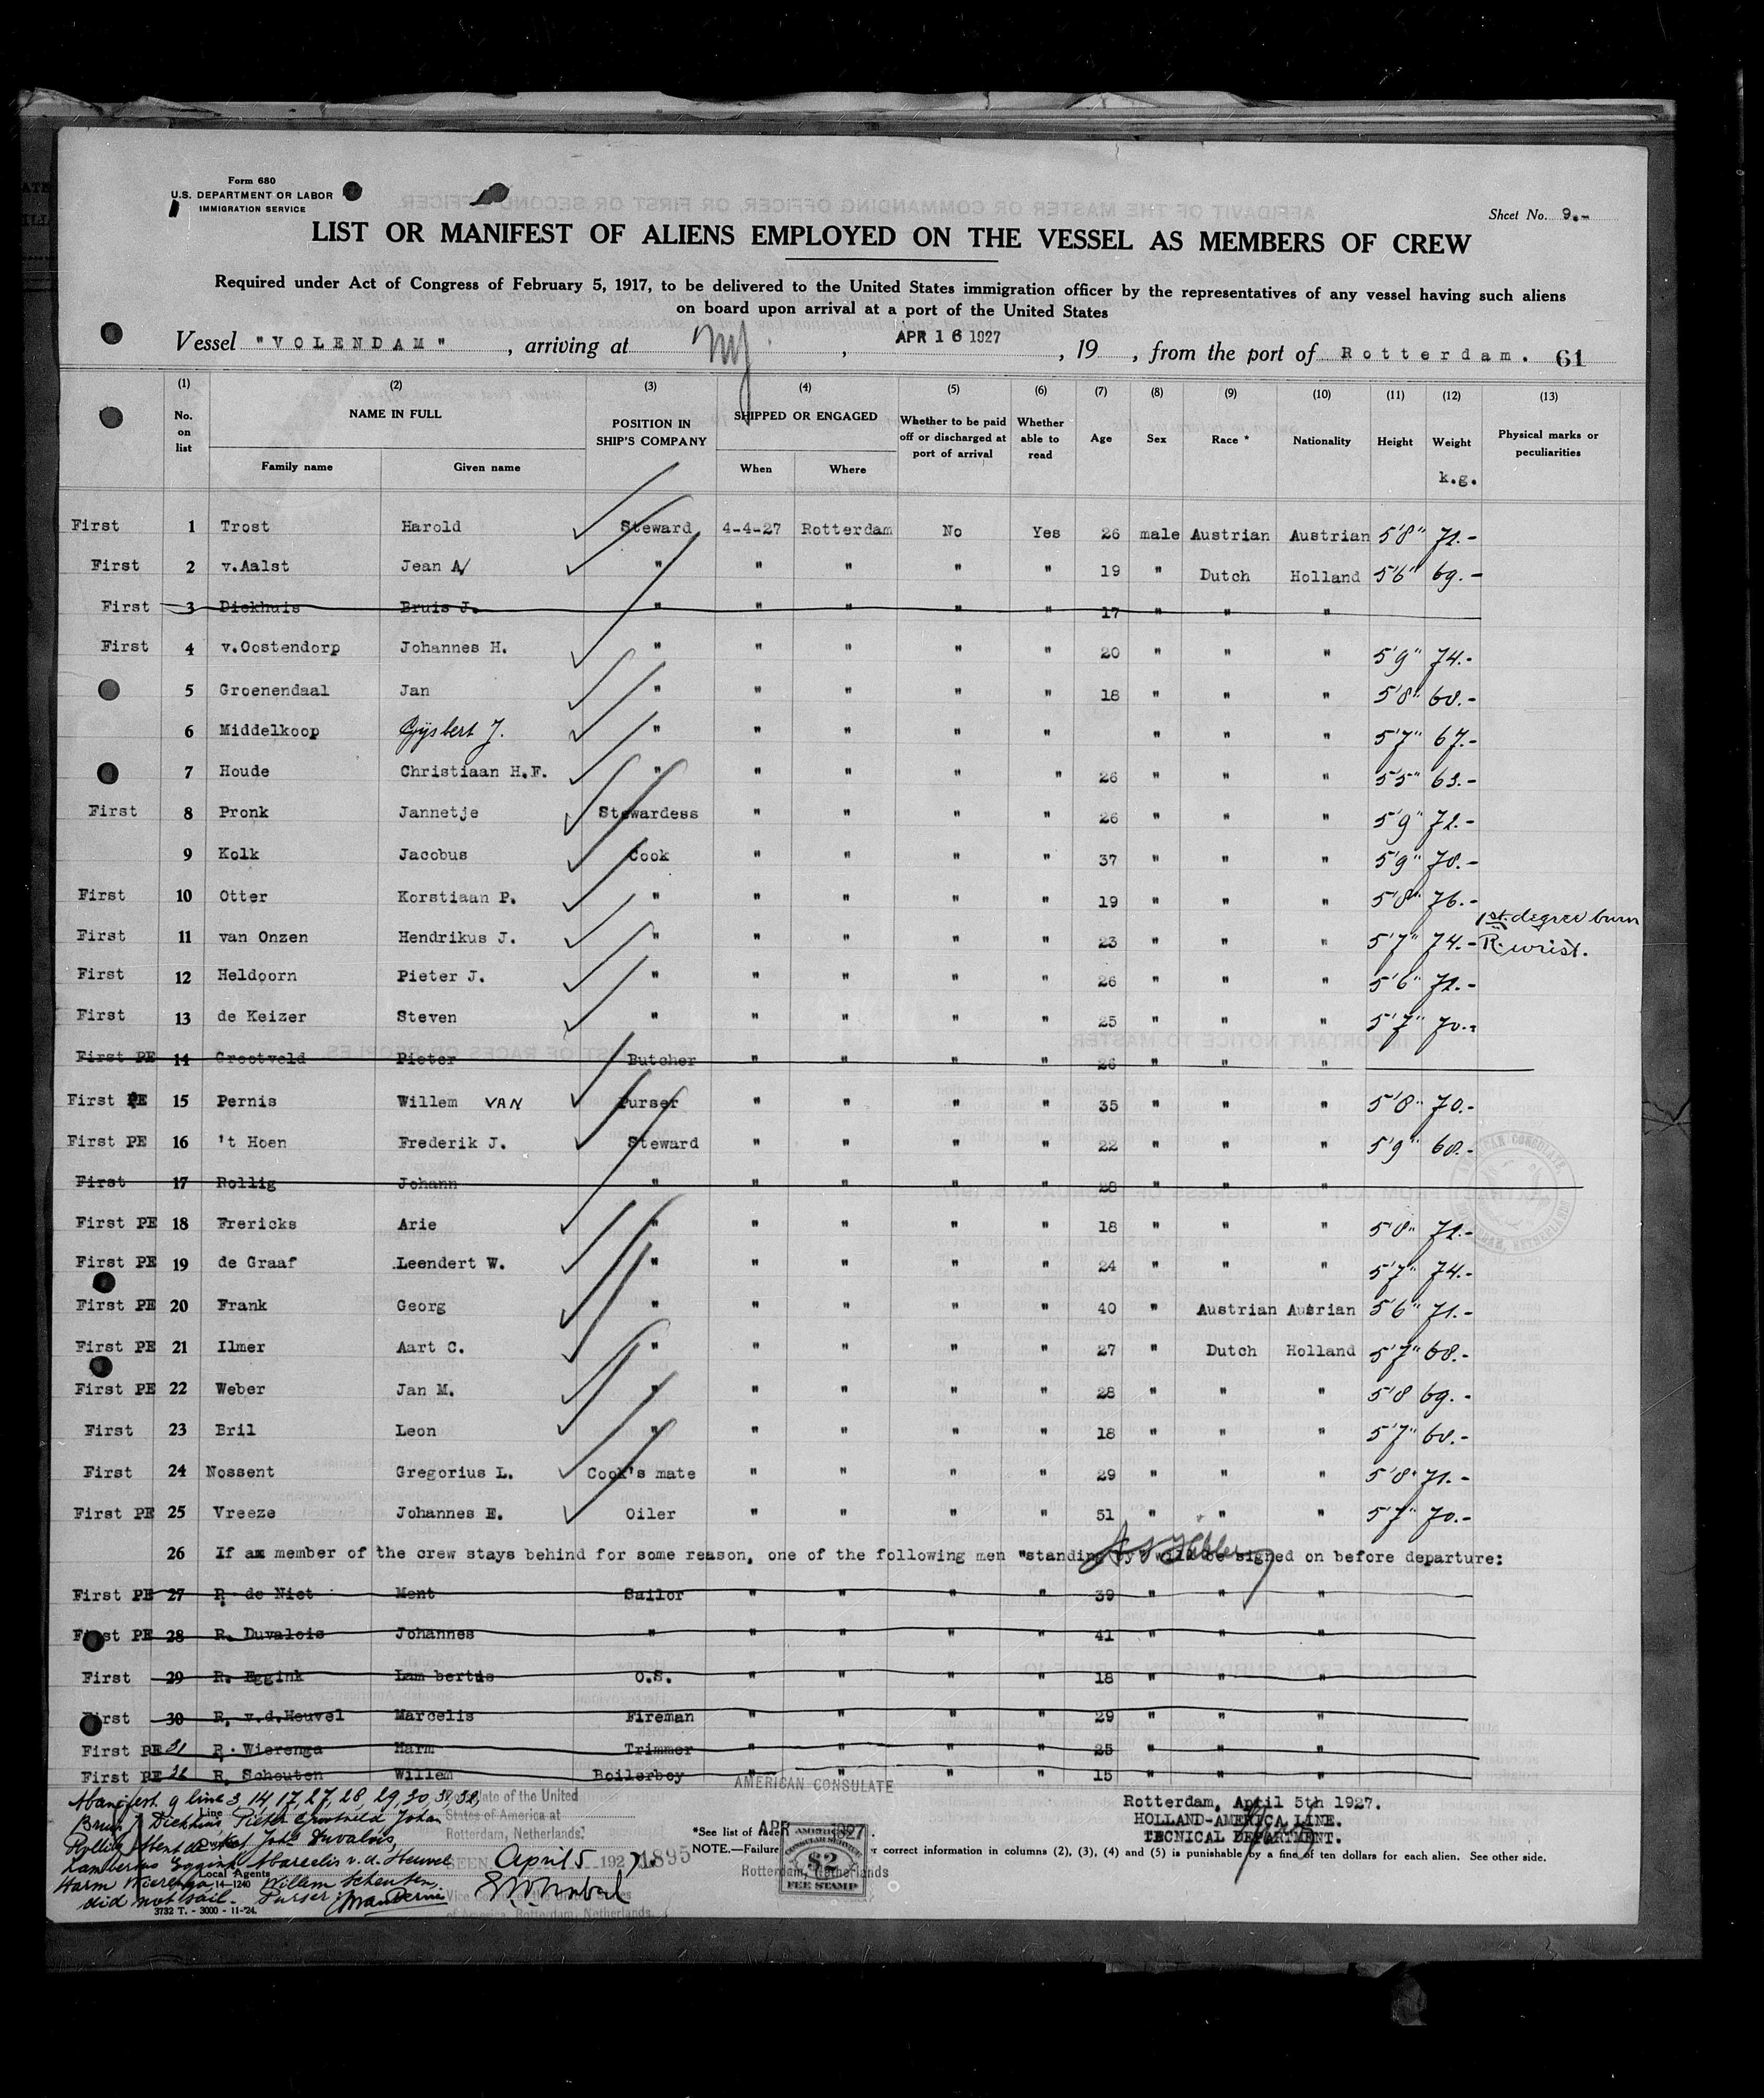 Form 680
U.S. DEPARTMENT OF LABOR
IMMIGRATION SERVICE
Sheet No. 9.-
LIST OR MANIFEST OF ALIENS EMPLOYED ON THE VESSEL AS MEMBERS OF CREW
Required under Act of Congress of February 5, 1917, to be delivered to the United States immigration officer by the representatives of any vessel having such aliens
on board upon arrival at a port of the United States
Vessel "VOLENDAM", arriving at NY., APR 16 1927, 19 , from the port of Rotterdam. 61
(1) (2) (3) (4) (5) (6) (7) (8) (9) (10) (11) (12) (13)
No. on list NAME IN FULL POSITION IN SHIP'S COMPANY SHIPPED OR ENGAGED Whether to be paid off or discharged at port of arrival Whether able to read Age Sex Race * Nationality Height Weight Physical marks or peculiarities
Family name Given name When Where k.g.
First 1 Trost Harold Steward 4-4-27 Rotterdam No Yes 26 male Austrian Austrian 5'8" 72.-
First 2 v.Aalst Jean A " " " " " 19 " Dutch Holland 5'6" 69.-
First 3 Diekhuis Bruis J. " " " " " 17 " " "
First 4 v.Oostendorp Johannes H. " " " " " 20 " " " 5'9" 74.-
5 Groenendaal Jan " " " " " 18 " " " 5'8" 68.-
6 Middelkoop Gijsbert J. " " " " " " " " 5'7" 67.-
7 Houde Christiaan H.F. " " " " " 26 " " " 5'5" 63.-
First 8 Pronk Jannetje Stewardess " " " " 26 " " " 5'9" 72.-
9 Kolk Jacobus Cook " " " " 37 " " " 5'9" 78.-
First 10 Otter Korstiaan P. " " " " " 19 " " " 5'8" 76.-
First 11 van Onzen Hendrikus J. " " " " " 23 " " " 5'7" 74.- 1st. degree burn
R. wrist.
First 12 Heldoorn Pieter J. " " " " " 26 " " " 5'6" 72.-
First 13 de Keizer Steven " " " " " 25 " " " 5'7" 70.-
First PE 14 Grootveld Pieter Butcher " " " " 26 " " "
First PE 15 Pernis Willem VAN Purser " " " " 35 " " " 5'8" 70.-
First PE 16 't Hoen Frederik J. Steward " " " " 22 " " " 5'9" 68.-
First 17 Rollig Johann " " " " " 28 " " "
First PE 18 Frericks Arie " " " " " 18 " " " 5'8" 72.-
First PE 19 de Graaf Leendert W. " " " " " 24 " " " 5'7" 74.-
First PE 20 Frank Georg " " " " " 40 " Austrian Ausrian 5'6" 71.-
First PE 21 Ilmer Aart C. " " " " " 27 " Dutch Holland 5'7" 68.-
First PE 22 Weber Jan M. " " " " " 28 " " " 5'8 69.-
First 23 Bril Leon " " " " " 18 " " " 5'7" 68.-
First 24 Nossent Gregorius L. Cook's mate " " " " 29 " " " 5'8" 71.-
First PE 25 Vreeze Johannes E. Oiler " " " " 51 " " " 5'7" 70.-
26 If a member of the crew stays behind for some reason, one of the following men "standing by" will be signed on before departure:
First PE 27 R. de Niet Ment Sailor " " " " 39 " " "
First PE 28 R. Duvalois Johannes " " " " " 41 " " "
First 29 R. Eggink Lambertus O.S. " " " " 18 " " "
First 30 R. v.d.Heuvel Marcelis Fireman " " " " 29 " " "
First PE 31 R. Wierenga Harm Trimmer " " " " 25 " " "
First PE 32 R. Schouten Willem Boilerboy " " " " 15 " " "
AMERICAN CONSULATE
Manifest 9 line 3, 14, 17, 27, 28, 29, 30, 31, 32,
Line
Owners
Local Agents
14—1240
Lambertus Eggink Marcelis v.d. Heuvel
Harm Wierenga, Willem Schouten,
did not sail. Purser
3732 T. - 3000 - 11-'24.
Consulate of the United
States of America at
Rotterdam, Netherlands.
SEEN April 5 1927. 1895
of America, Rotterdam, Netherlands.
Rotterdam, April 5th 1927.
HOLLAND-AMERICA LINE.
TECNICAL DEPARTMENT.
*See list of races APR 1927.
NOTE.—Failure correct information in columns (2), (3), (4) and (5) is punishable by a fine of ten dollars for each alien. See other side.
Rotterdam, Netherlands
AMERICAN
CONSULAR SERVICE
$2
FEE STAMP